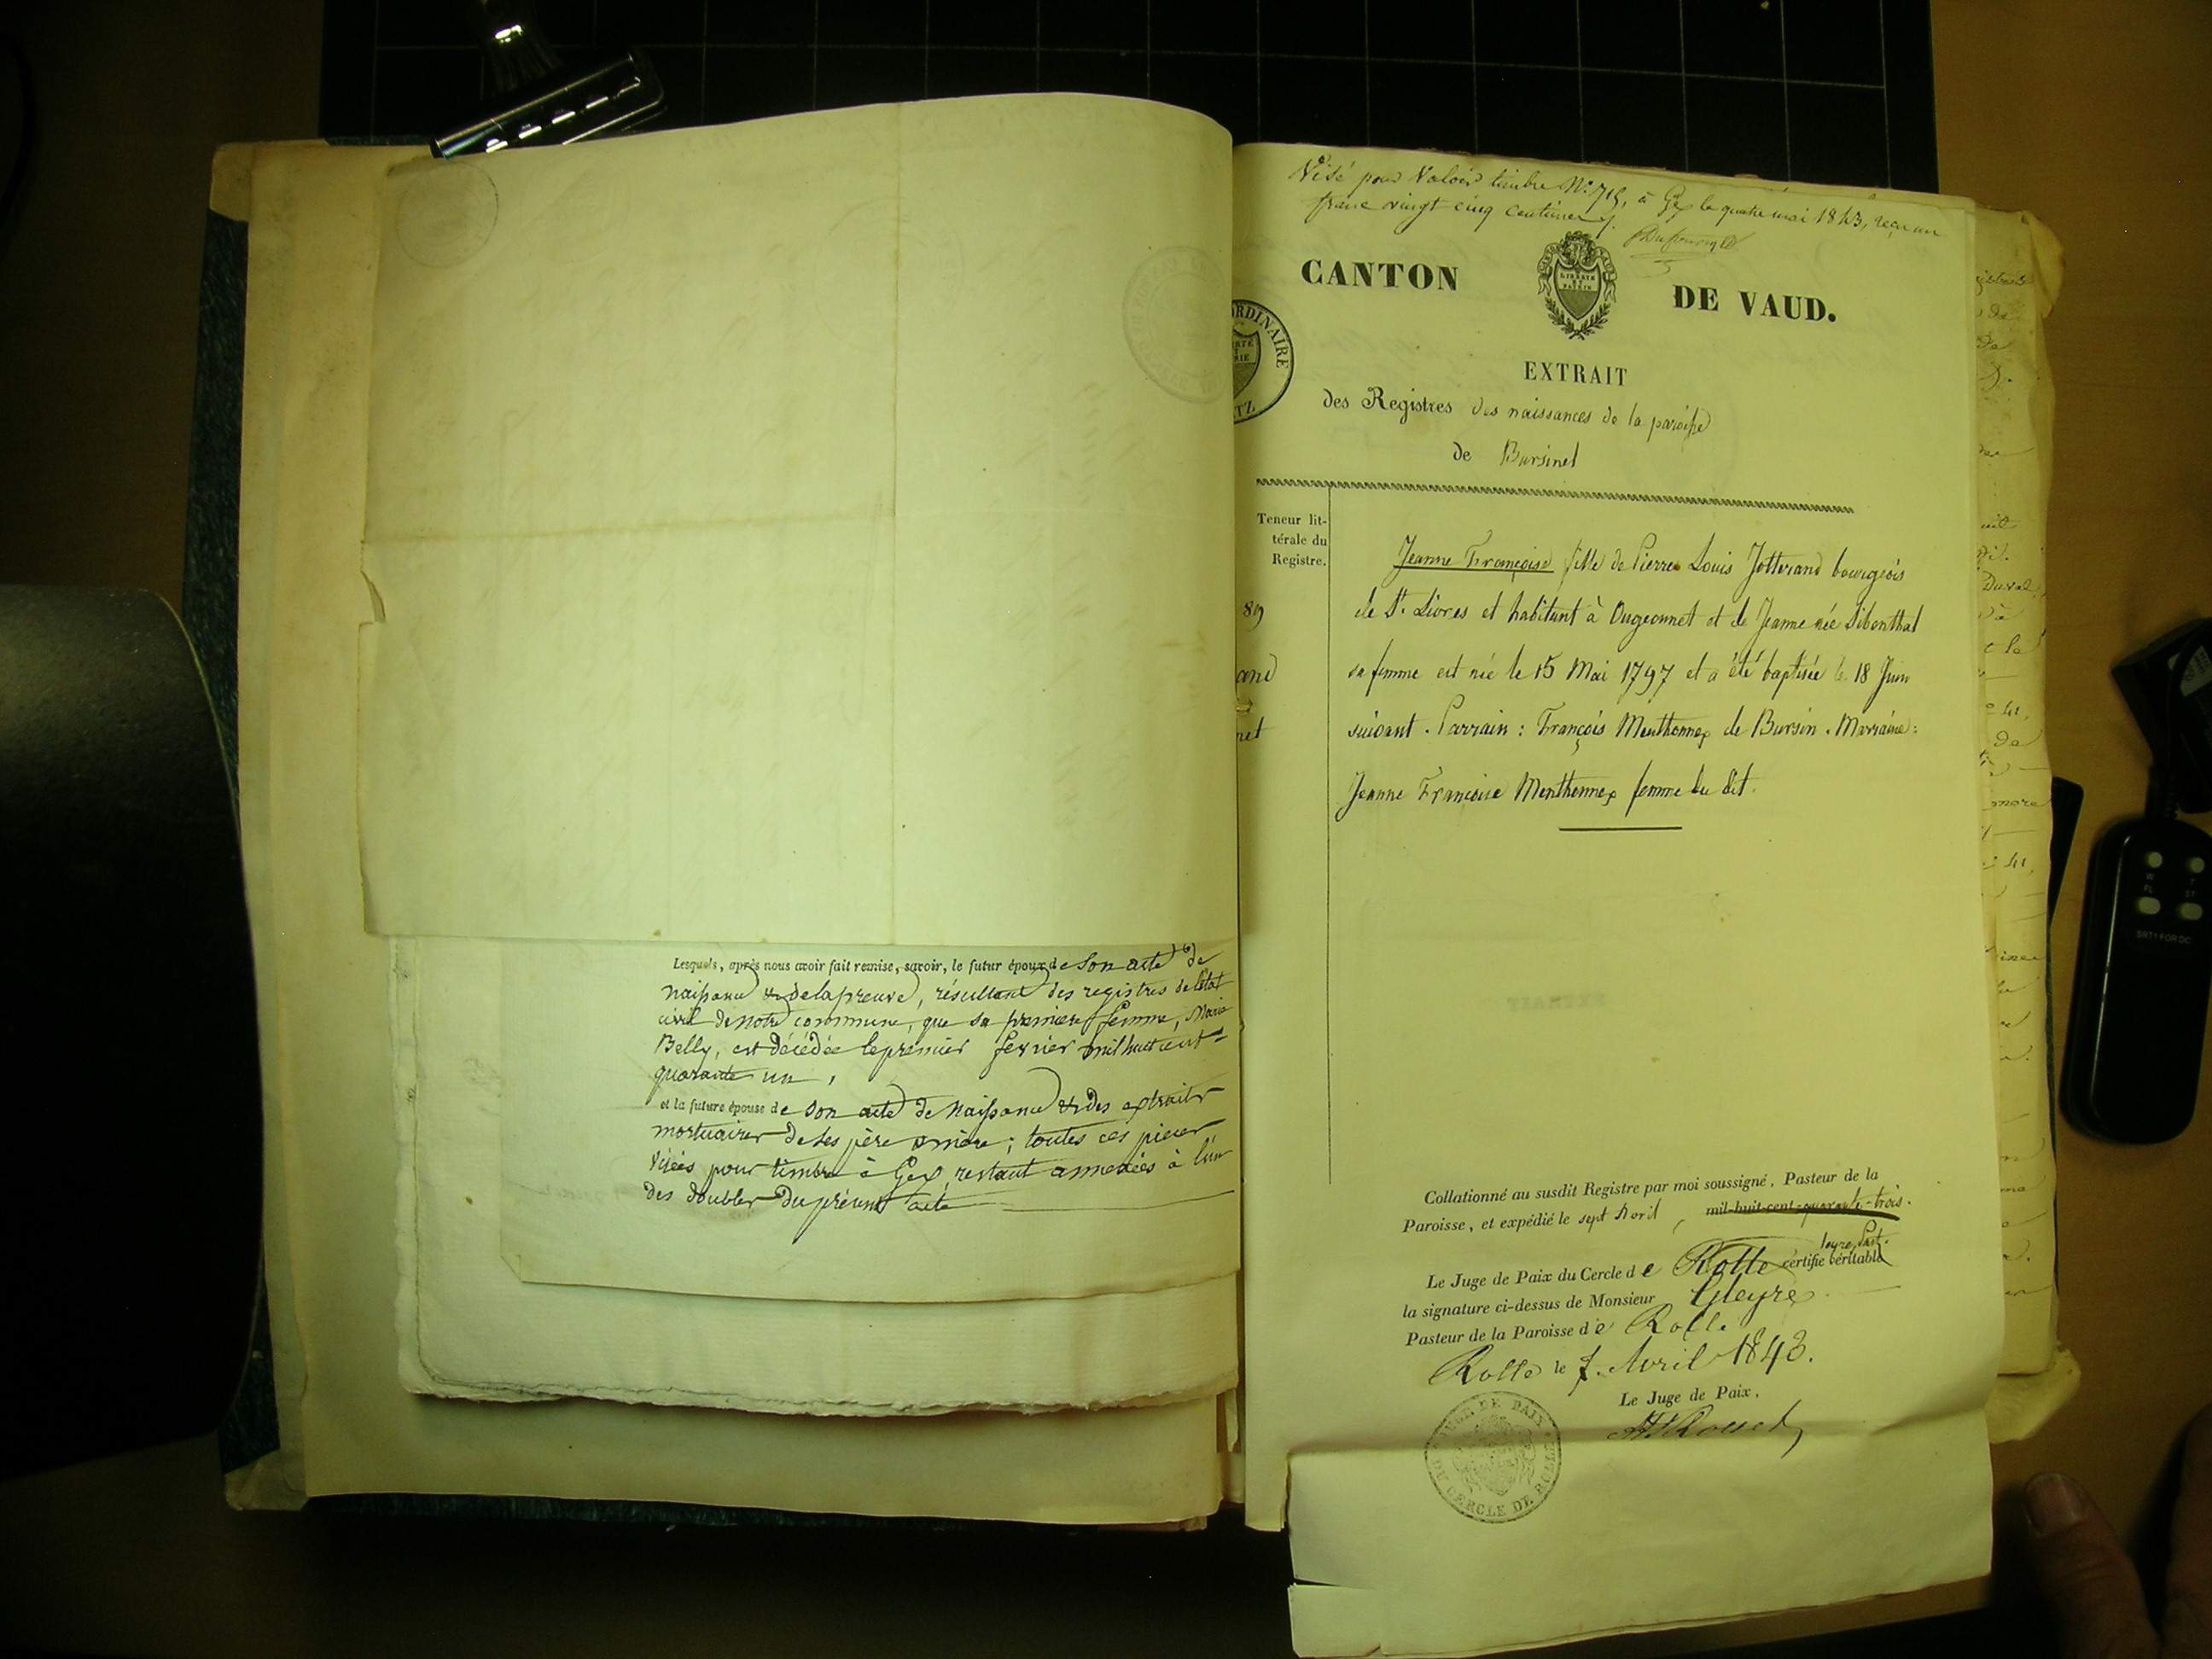 Lesquels, après nous avoir fait remise, savoir, le futur époux de son acte de
naissance & de la preuve, résultant des registres de l'état
civil de notre commune, que sa première femme, Marie
Belly, est décédée le premier fevrier mil huit cent
quarante un,
et la future épouse de son acte de naissance & des extraits
mortuaires de ses père & mère; toutes ces pieces
visées pour timbre à Gex, restant annexées à l'un
des doubles du présent acte
Visé pour Valoir timbre N.º 715, à Gex le quatre mai 1843, reçu un
franc vingt cinq centimes
CANTON DE VAUD.
LIBERTÉ ET PATRIE
ORDINAIRE
TZ
EXTRAIT
des Registres des naissances de la paroisse
de Bursinel
Teneur lit-
térale du
Registre.
89
and
net
Jeanne Françoise fille de Pierre Louis Jotterand bourgeois
de St. Livres et habitant à Ougeonnet et de Jeanne née Sibenthal
sa femme est née le 15 Mai 1797 et a été baptisée le 18 Juin
suivant. Parrain: François Menthonnex de Bursin. Marraine:
Jeanne Françoise Menthonnex femme du dit.
Collationné au susdit Registre par moi soussigné, Pasteur de la
Paroisse, et expédié le sept Avril, mil-huit-cent-quarante-trois.
Le Juge de Paix du Cercle de Rolle certifie véritable
la signature ci-dessus de Monsieur Gleyre
Pasteur de la Paroisse de Rolle
Rolle le 7. Avril 1843.
Le Juge de Paix,
JUGE DE PAIX DU CERCLE DE ROLLE